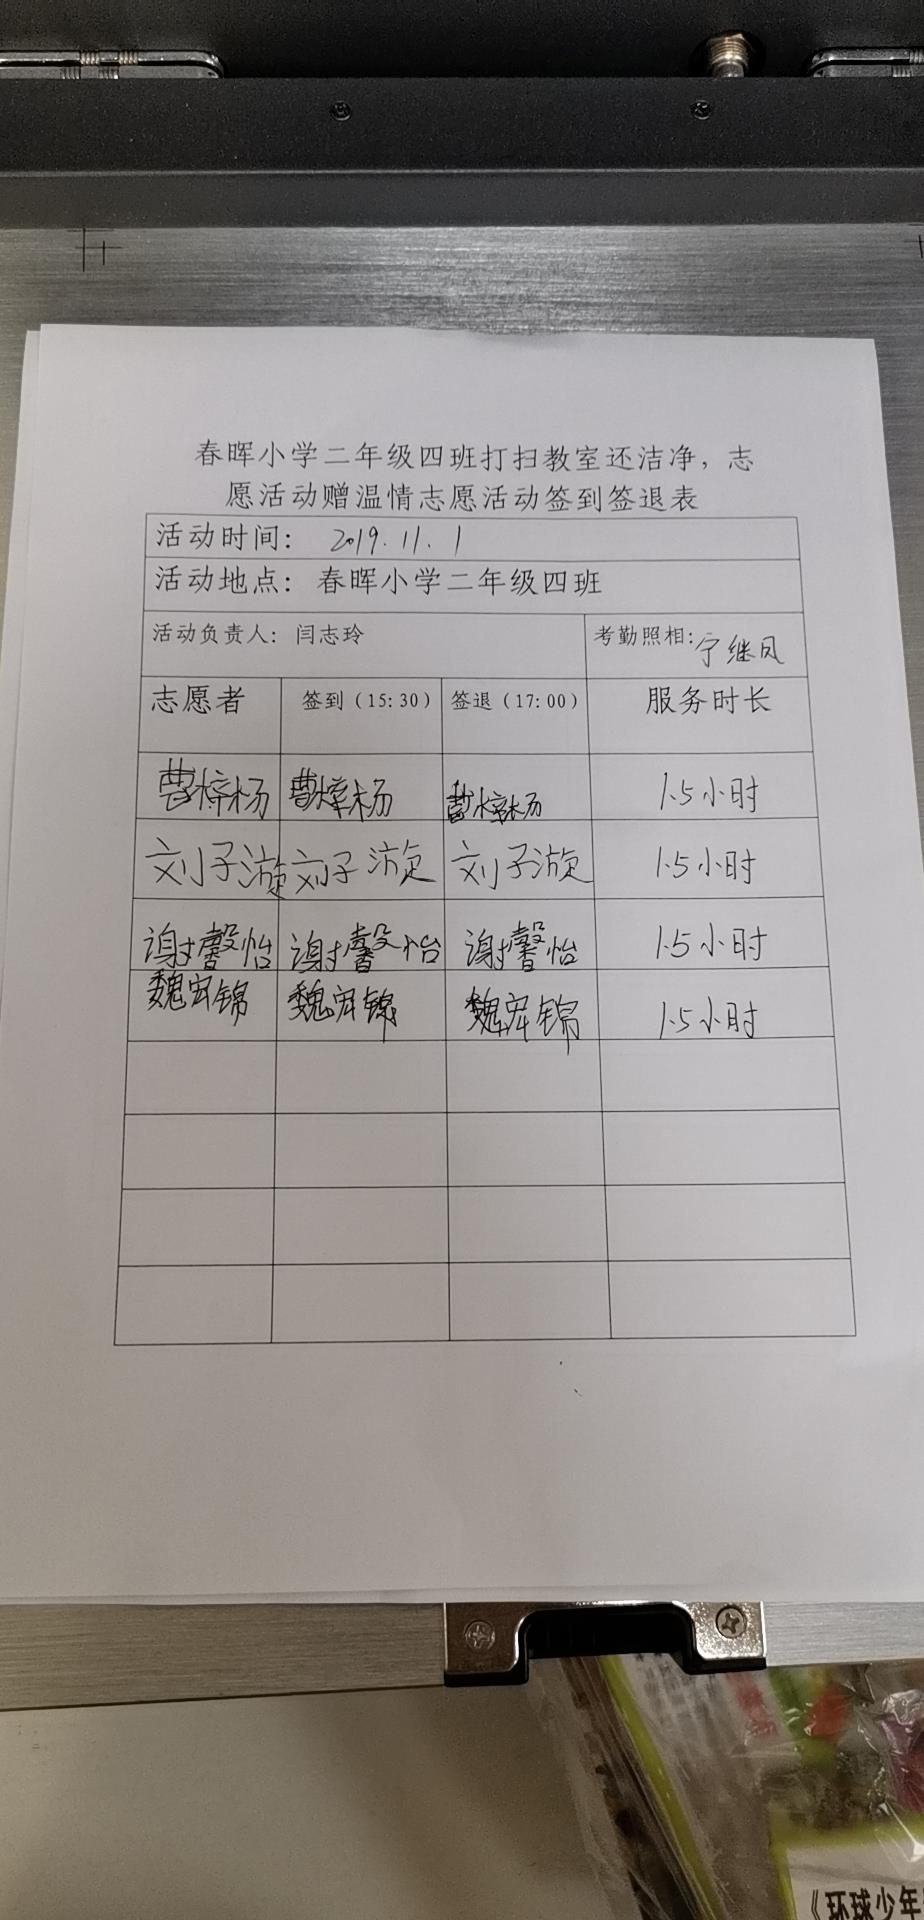 春晖小学二年级四班打扫教室还洁净，志
愿活动赠温情志愿活动签到签退表
活动时间： 2019.11.1
活动地点：春晖小学二年级四班
活动负责人：闫志玲 考勤照相：宁继凤
志愿者 签到（15:30） 签退（17:00） 服务时长
曹梓杨 曹梓杨 曹梓杨 1.5小时
刘子漩 刘子漩 刘子漩 1.5小时
谢馨怡 谢馨怡 谢馨怡 1.5小时
魏宏锦 魏宏锦 魏宏锦 1.5小时
《环球少年